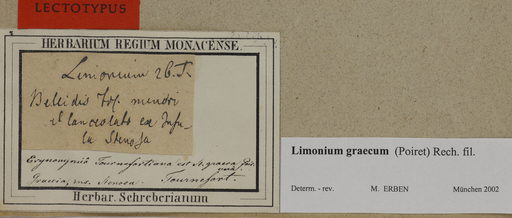 LECTOTYPUS
HERBARIUM REGIUM MONACENSE.
Limonium 26. T.
Bellidis fol. minori
et lanceolato ex Insu-
la
Tournefortiana est St. graeca
Graecia, ins.
Tournefort.
Herbar. Schreberianum
Limonium graecum (Poiret) Rech. fil.
Determ. - rev. M. ERBEN München 2002